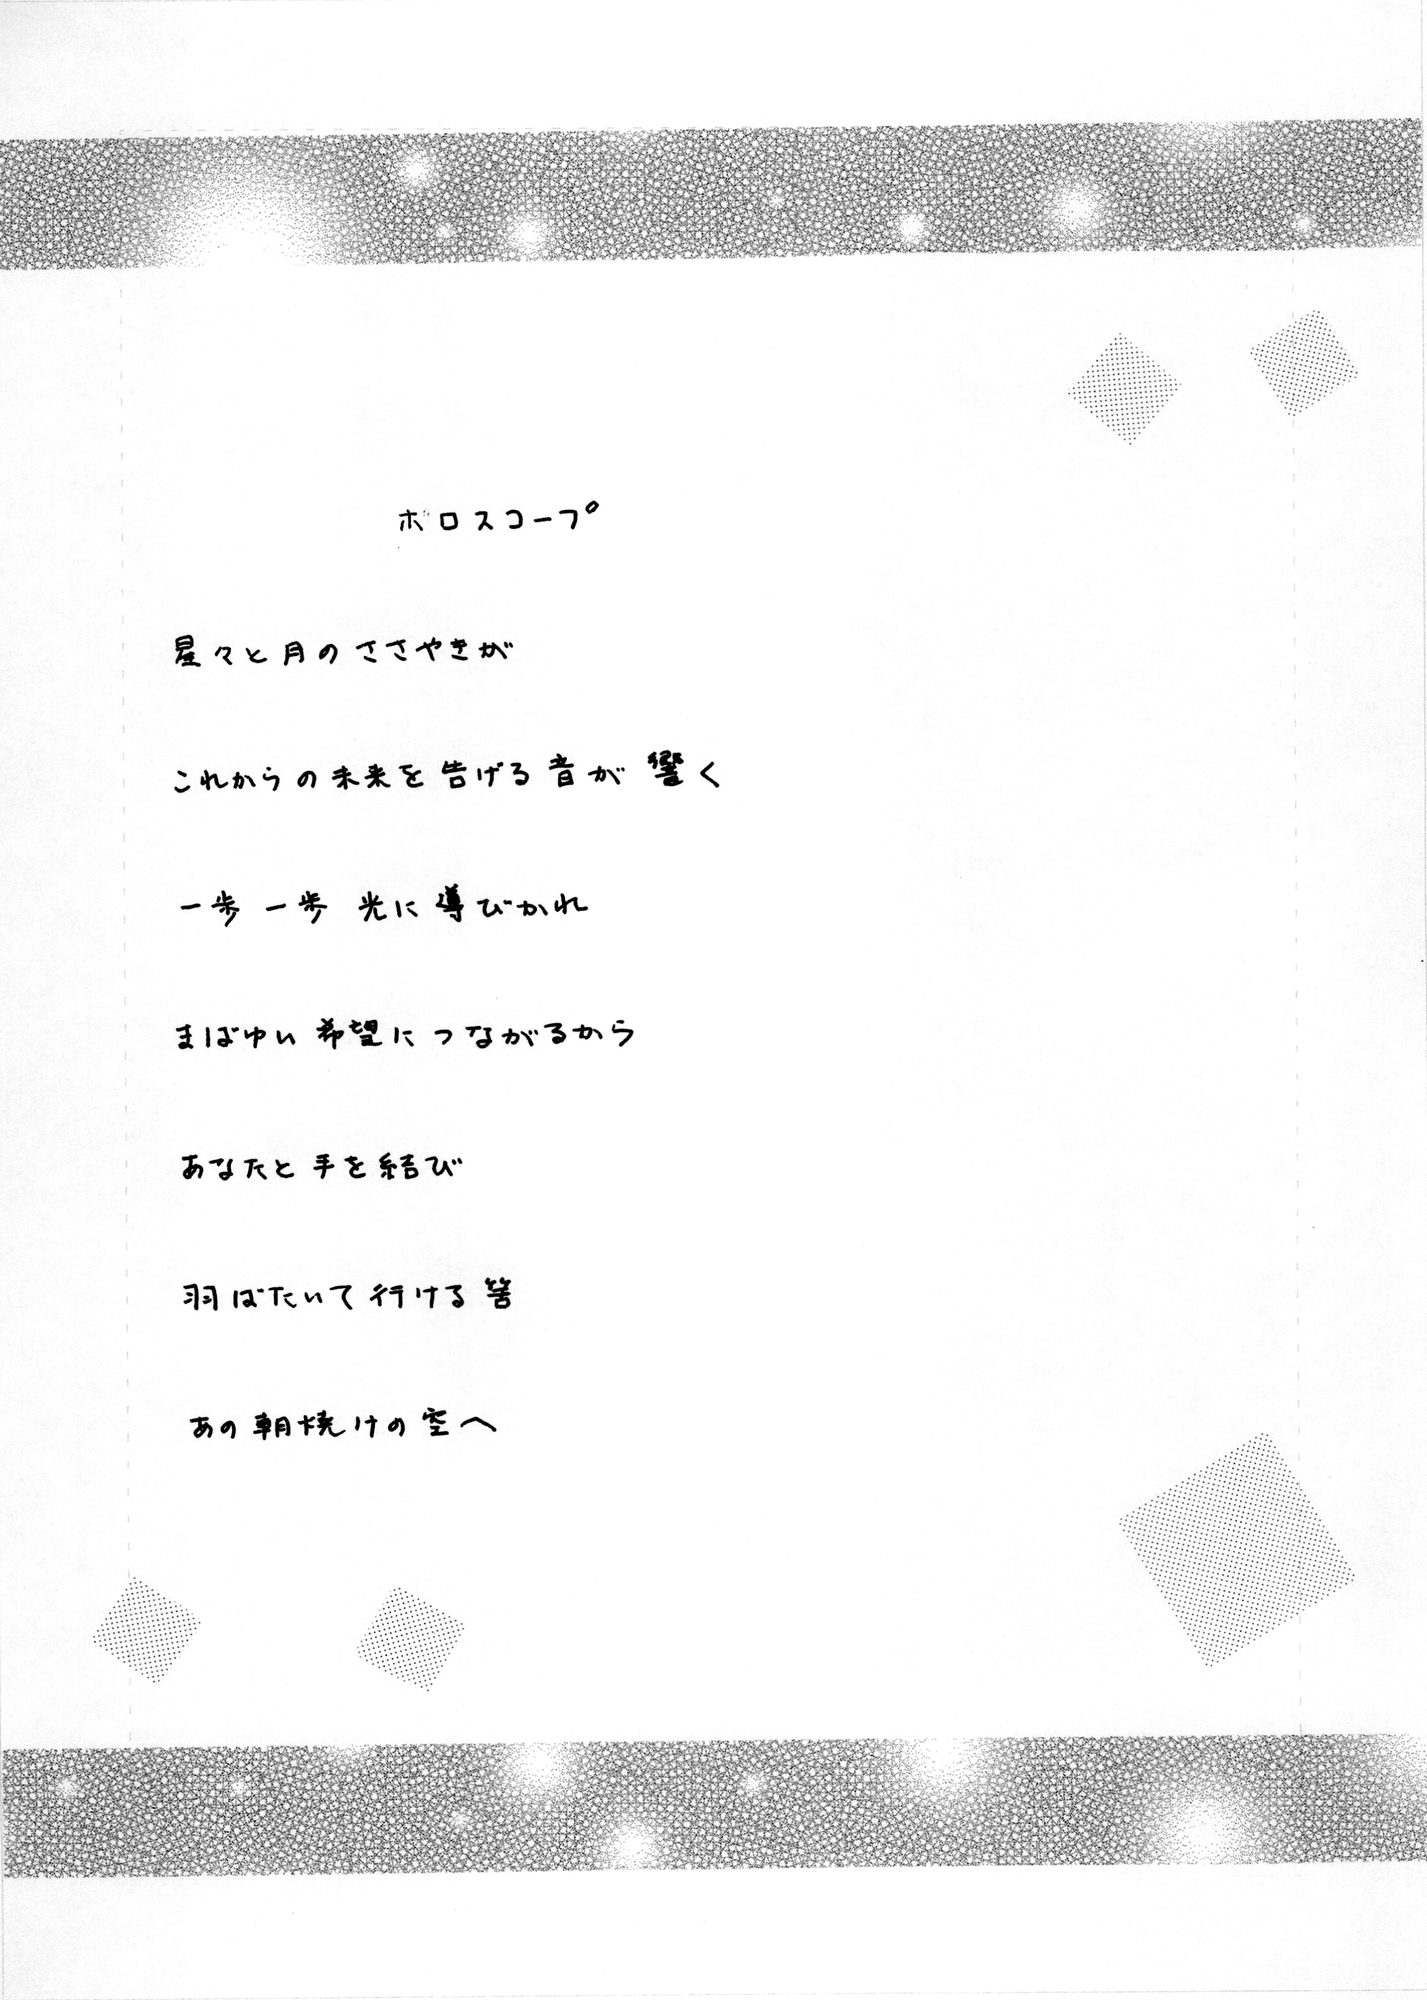 ホロスコープ
星々と月のささやきが
これからの未来を告げる音が響く
一歩 一歩 光に導びかれ
まばゆい希望につながるから
あなたと手を結び
羽ばたいて行ける筈
あの朝焼けの空へ